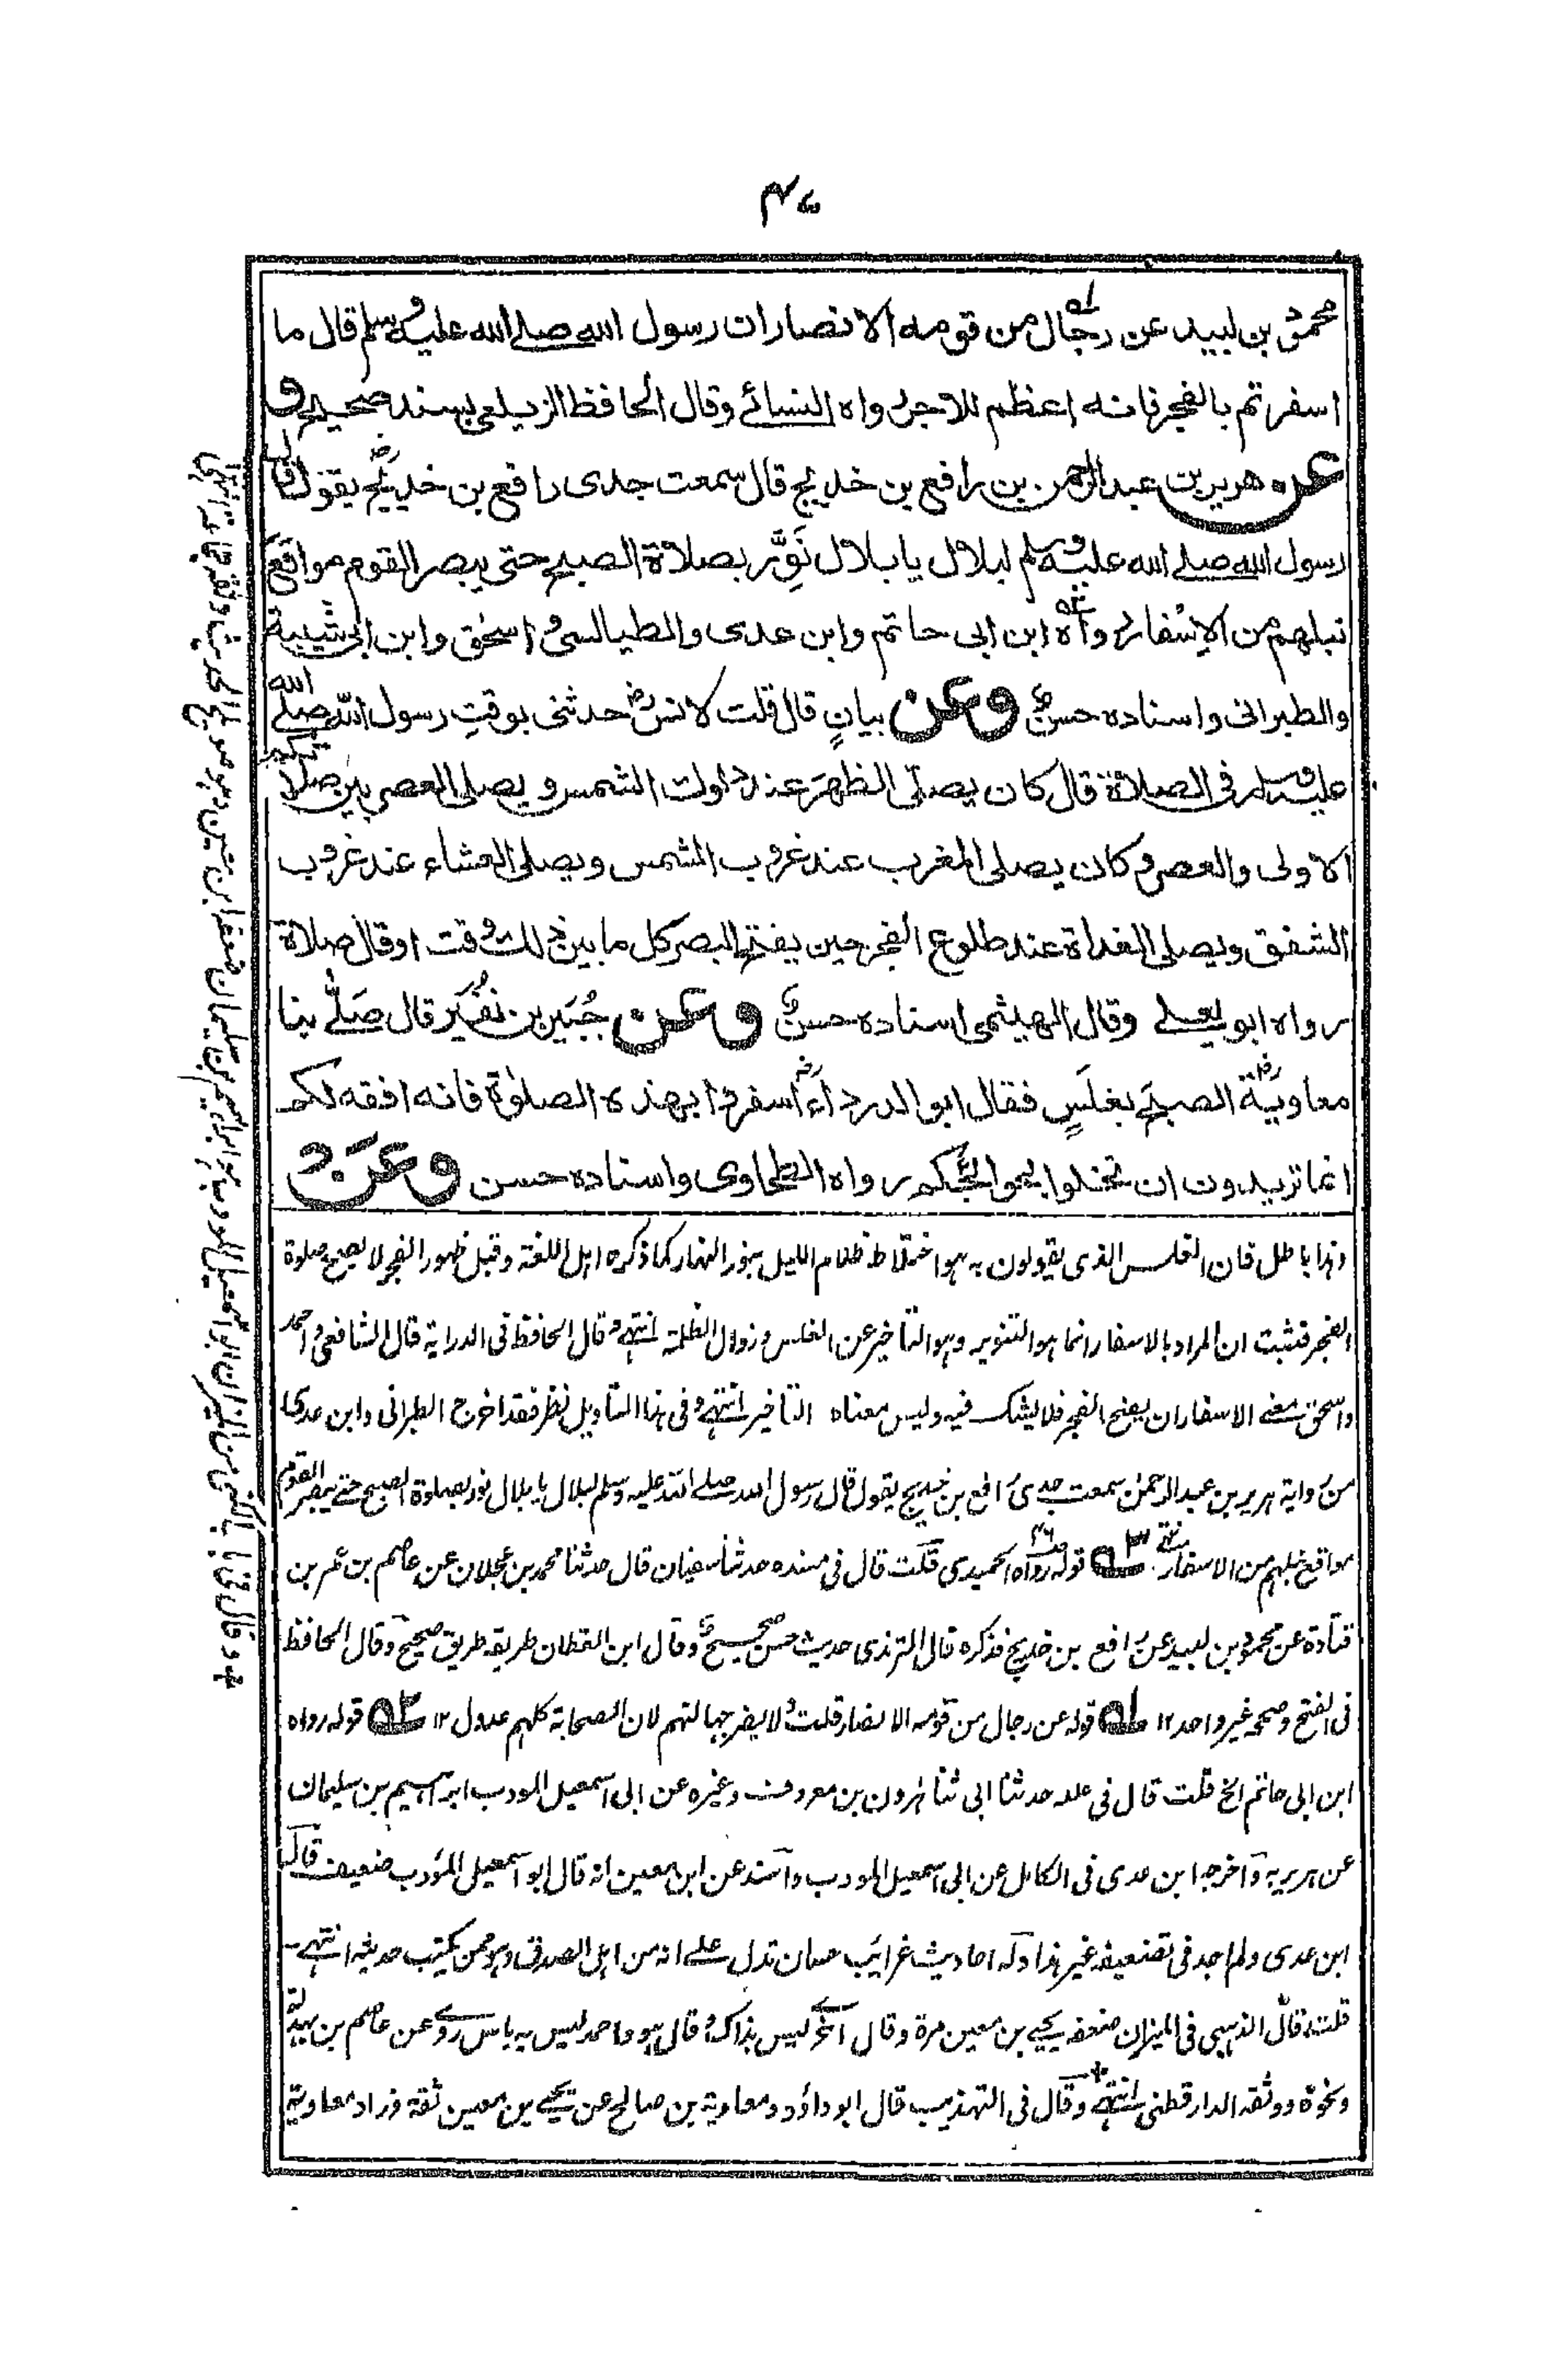 ۴۷
محمود بن لبید عن رجال من قومه الانصار ان رسول الله صلے الله علیه وسلم قال ما
اسفرتم بالفجر فانه اعظم للاجر رواه النسائے وقال الحافظ الزیلعی بسند صحیح و
عن هریر بن عبد الرحمن بن رافع بن خدیج قال سمعت جدی رافع بن خدیج رض یقول قال
رسول الله صلے الله علیه وسلم لبلال یا بلال نَوِّر بصلاة الصبح حتی یبصر القوم مواقع
نبلهم من الاِسْفار رواه ابن ابی حاتم وابن عدی والطیالسی واسحٰق وابن ابی شیبة
والطبرانی واسناده حسن وعن بیانٍ قال قلت لانس رض حدثنی بوقتِ رسول الله صلے الله
علیه وسلم فی الصلاة قال کان یصلی الظهرَ عند دلوك الشمس ویصلی العصر بین صلاتکم
الاولی والعصر وکان یصلی المغرب عند غروب الشمس ویصلی العشاء عند غروب
الشفق ویصلی الغداة عند طلوع الفجر حین یفتح البصر کل ما بین ذلك وقت او قال صلاة
رواه ابو یعلے وقال الهیثمی اسناده حسن وعن جُبَیر بن نُفَیر قال صَلّٰے بنا
معاویة رض الصبحَ بغلَسٍ فقال ابو الدرداء رض اسفروا بهذه الصلوٰة فانه افقه لکم
انما تریدون ان تخلوا بحوائجکم رواه الطحاوی واسناده حسن وعن
وہذا باطل فان الغلس الذی یقولون بہ ہو اختلاط ظلام اللیل بنور النہار کما ذکرہ اہل اللغة وقبل ظہور الفجر لا یصح صلوة
الفجر فثبت ان المراد بالاسفار انما ہو التنویر وہو التاخیر عن الغلس وزوال الظلمة انتہے وقال الحافظ فی الدرایة قال الشافعی واحمد
واسحٰق معنے الاسفار ان یضح الفجر فلا یشک فیہ ولیس معناہ التاخیر انتہے وفی ہذا التاویل نظر فقد اخرج الطبرانی وابن عدی
من روایة ہریر بن عبد الرحمٰن سمعت جدی رافع بن خدیج یقول قال رسول اللہ صلے اللہ علیہ وسلم لبلال یا بلال نور بصلوة الصبح حتے یبصر القوم
مواقع نبلہم من الاسفار انتہے ۵۳ قولہ رواہ الحمیدی قلت قال فی مسندہ حدثنا سفیان قال حدثنا محمد بن عجلان عن عاصم بن عمر بن
قتادة عن محمود بن لبید عن رافع بن خدیج فذکرہ قال الترمذی حدیث حسن صحیح وقال ابن القطان طریقہ طریق صحیح وقال الحافظ
فی الفتح وصححہ غیر واحد ۱۲ ۵۱ قولہ عن رجال من قومہ الانصار قلت ولا یضر جہالتہم لان الصحابة کلہم عدول ۱۲ ۵۲ قولہ رواہ
ابن ابی حاتم الخ قلت قال فی عللہ حدثنا ابی ثنا ہٰرون بن معروف وغیرہ عن ابی اسمٰعیل المودب ابراہیم بن سلیمان
عن ہریر بہ وآخرجہ ابن عدی فی الکامل عن ابی اسمٰعیل المودب وآسند عن ابن معین انہ قال ابو اسمٰعیل المؤدب ضعیف قال
ابن عدی ولم اجد فی تضعیفہ غیر ہذا ولہ احادیث غرائب حسان تدل علے انہ من اہل الصدق وہو ممن یکتب حدیثہ انتہے
قلت قال الذہبی فی المیزان ضعفہ یحیے بن معین مرة وقال آخرے لیس بذاک وقال ہو واحمد لیس بہ باس روے عن عاصم بن بہدلة
ونحوہ ووثقہ الدارقطنی انتہے وقال فی التہذیب قال ابو داؤد ومعاویة بن صالح عن یحیے بن معین ثقة وزاد معاویة